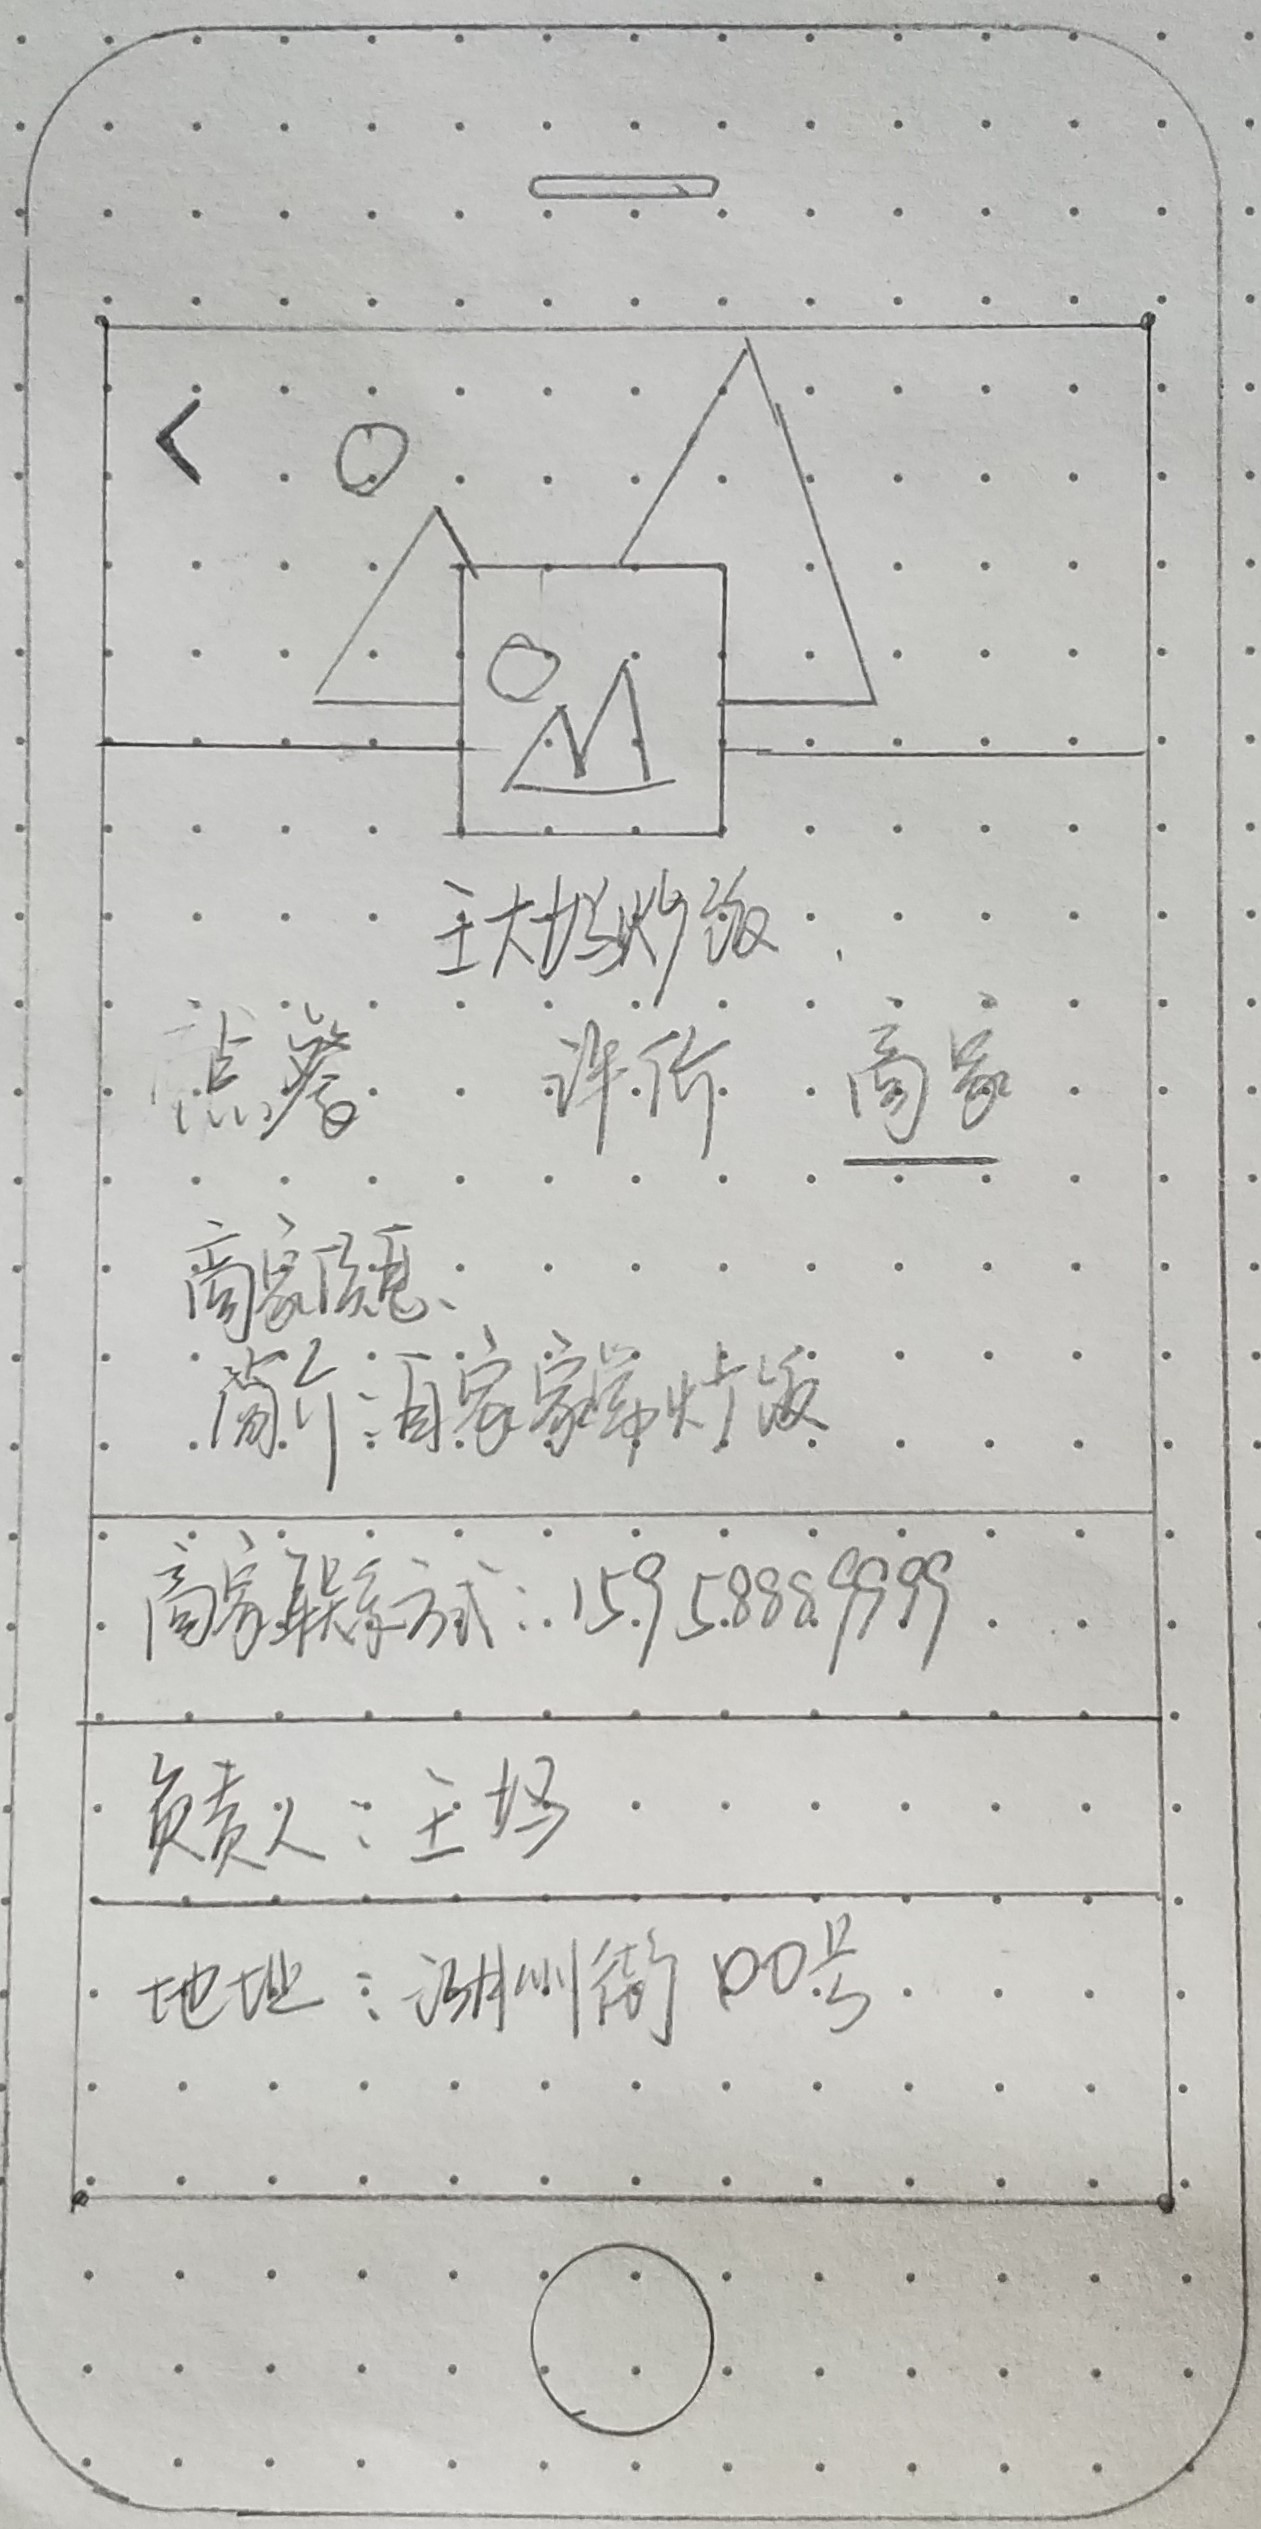 王大妈炒饭
点餐 评价 商家
商家信息
简介:自家家常炒饭
商家联系方式:159 5888 9999
负责人:王妈
地址:湖州街100号